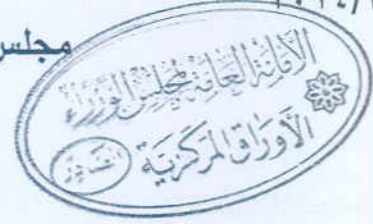 مجلس
الأمانة العامة لمجلس الوزراء
الأوراق المركزية
الصادر